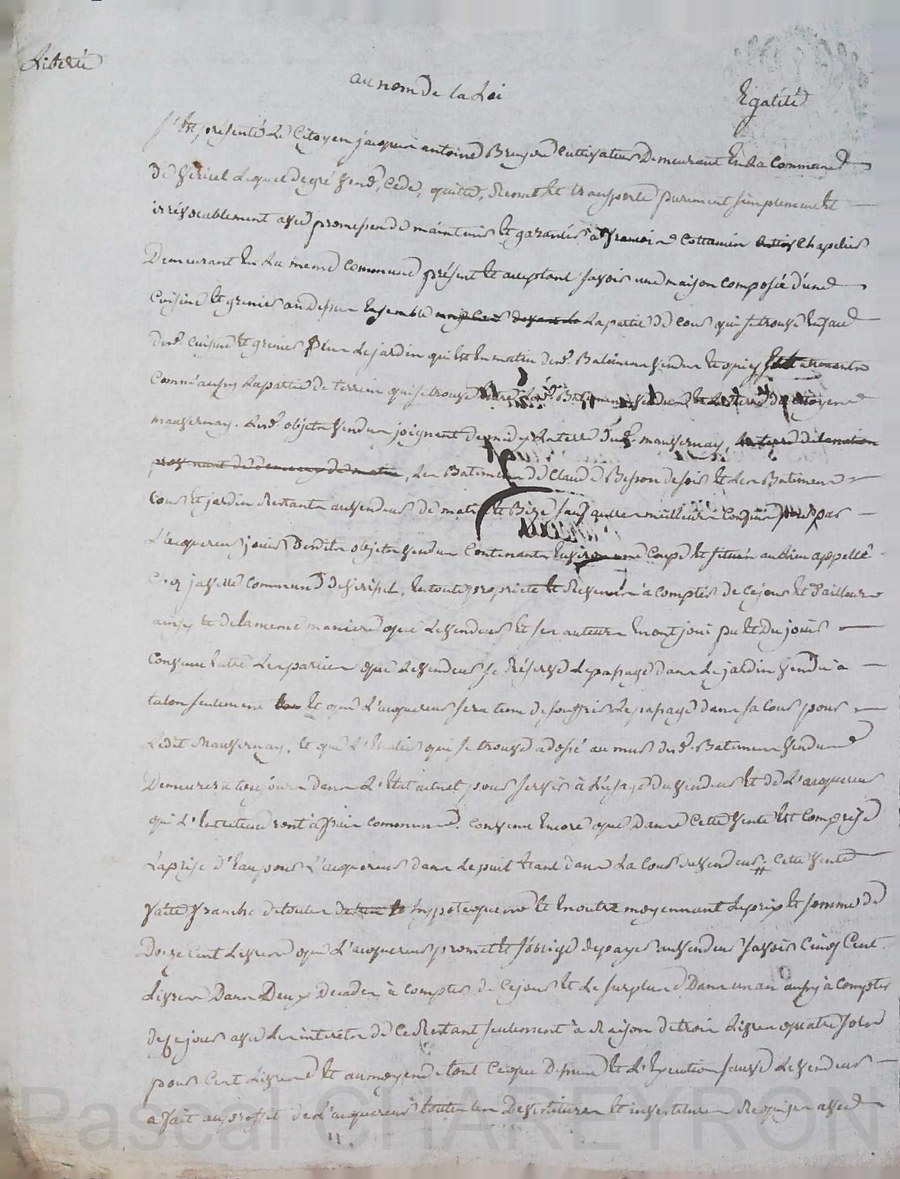 Liberté
au nom de la Loi
Egalité
S'est présenté Le Citoyen jacques antoine Bruyere Cultivateur Demeurant En La Commune
De Lequel De gré vend, Cede, quitte, Remet et transporte purement simplement et
irrévocablement avec promesse de maintenir et garantir à francois Cottamin Chapelier
Demeurant En La meme Commune présent et acceptant savoir une maison composée d'une
Cuisine et grenier au dessus Ensemble La partie de cour qui se trouve En face
Dud. cuisine et grenier Le jardin qui Est En matin dud. Batiment vendu
Comm'aussy La partie de terrein qui se trouve Batiment vendu et du Citoyen
mausernay. Lesd. objets vendus joignent de midy mausernay,
, Les Batiments de Claude Besson de soir et Les Batiments
Cour et jardin Restants au vendeur de matin et Bize sauf autres meilleurs Confins par
L'acquereur jouir Desdits objets vendus Contenants Environ une Coupe et situés au Lieu appellé
jasselle Commune de, En toute proprieté et à compter de Cejour et D'ailleurs
ainsy et de La meme maniere que Le vendeur et ses auteurs En ont joui pu et Du jouir
Convenu Entre Les parties que Le vendeur se Réserve Le passage dans Le jardin vendu à
talon seulement et que L'acquereur sera tenu de souffrir Le passage dans sa Cour pour
Ledit Mausernay, et que L' qui se trouve adossé au mur dud. Batiment vendu
Demeurera toujours dans L'Etat actuel pour servir à L'usage du vendeur et de L'acquereur
qui L'Entretiendront à frais communs. Convenu Encore que Dans Cette vente Est Comprise
La prise D'Eau pour L'acquereur dans Le puit Etant dans La Cour du vendeur: Cette vente
faite franche de toutes hypotecques et En outre moyennant Le prix et somme de
Douze Cent Livres que L'acquereur promet et s'oblige de payer au vendeur savoir Cinq Cent
Livres Dans Deux Decades à Compter de Cejour et Le surplus Dans un an aussy à Compter
de Cejour avec Les interets de Ce Restant seulement à Raison de trois Livres quatre sols
pour Cent Livres et au moyen de tout Ceque Dessus et L'Execution sauve Le vendeur
a fait au profit de L'acquereur toutes Les Devetitures et investitures Requises avec
Pascal CHAREYRON